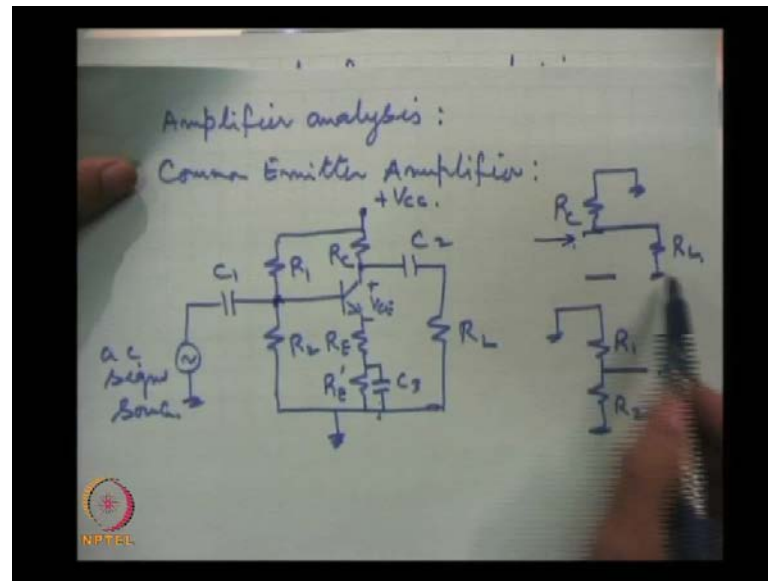 Amplifier analysis :
Common Emitter Amplifier :
+Vcc.
C1
R1
RC
C2
VCE
R2
RE
RE'
C3
RL
ac
signal
Source.
RC
RL
R1
R2
NPTEL